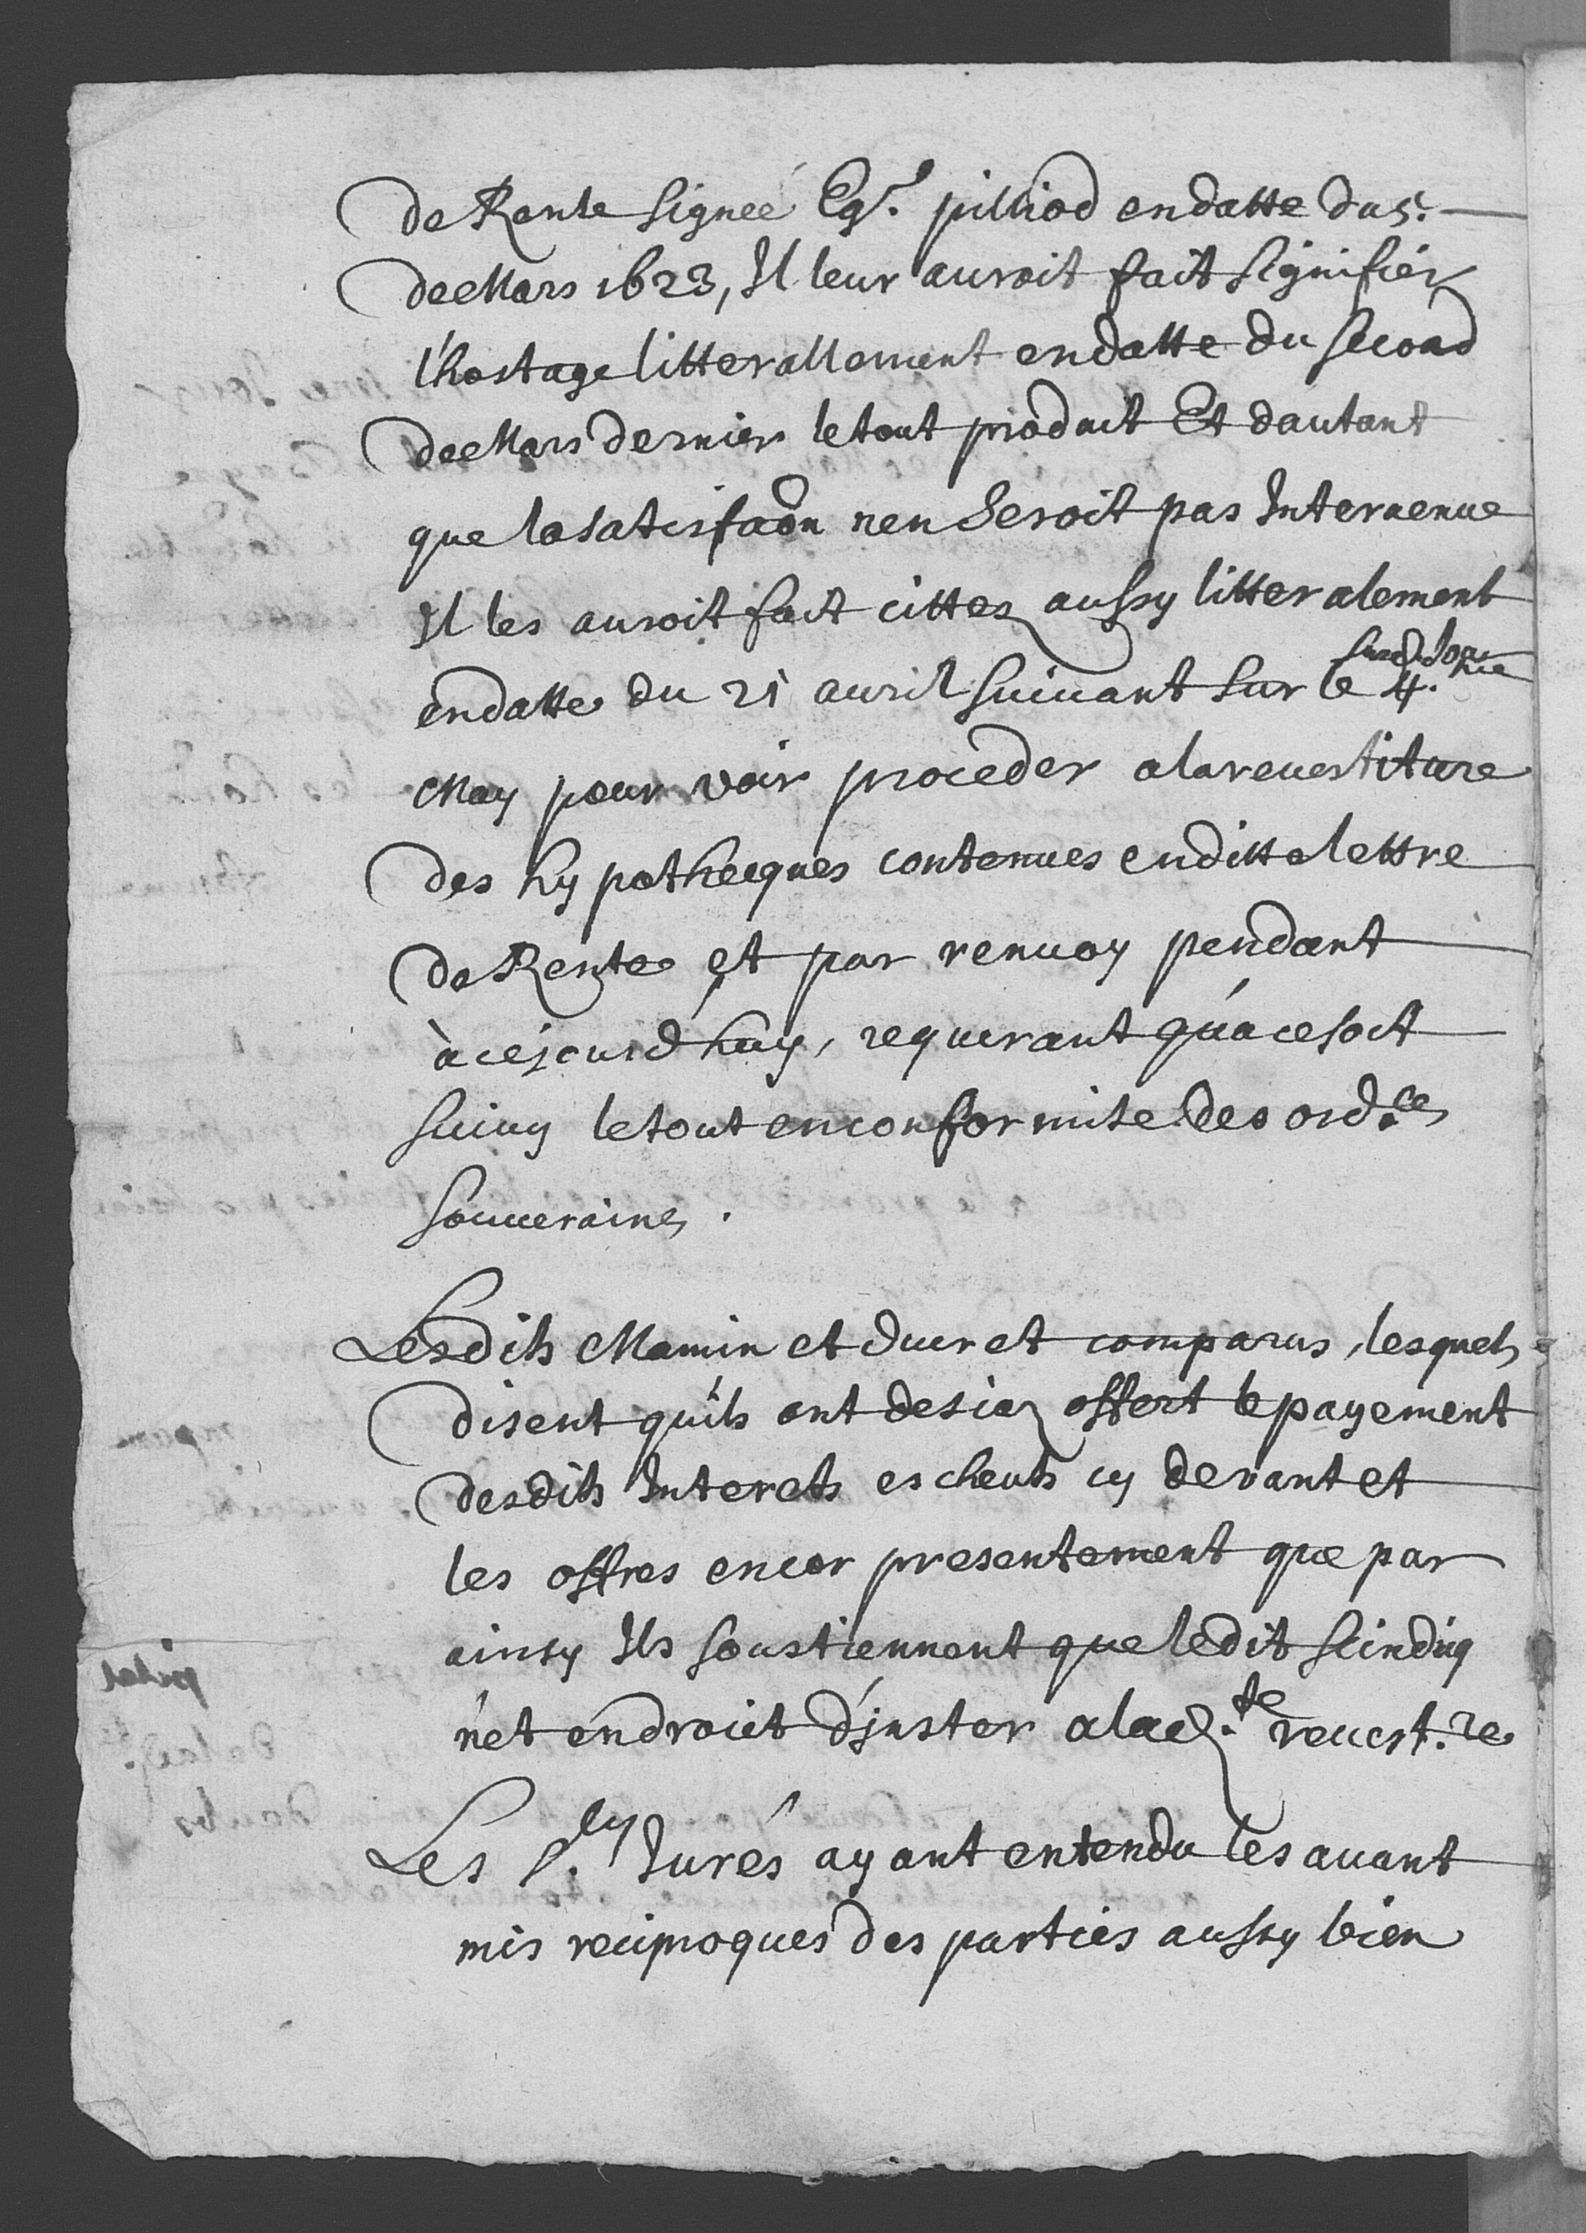 de Rente signeé Egr. pilliod en datte du 5.
de Mars 1623, Il leur auroit fait signifier
l'hostage litterallement en datte du second
de Mars dernier le tout produit Et dautant
que la satisfaõn nen seroit pas Interuenue
Il les auroit fait citter aussy litteralement
en datte du 21 auril suiuant sur le 4.
May pour voir proceder a la reuestiture
des hypothecques contenues en ditte lettre
de Rente et par renuoy pendant
à cejourdhuy, requerant qu'a ce soit
suiuy le tout en conformite des ord.ces
souueraines.
Lesdits Mamin et ducret comparus, lesquels
disent quils ont desia offert le payement
desdits Interets escheuts cy devant et
les offres encor presentement que par
ainsy Ils soustiennent que ledit scindiq
n'et en droict d'jnster a lad.te reuest.re
Les Jurés ayant entendu les auant
mis reciproques des parties aussy bien